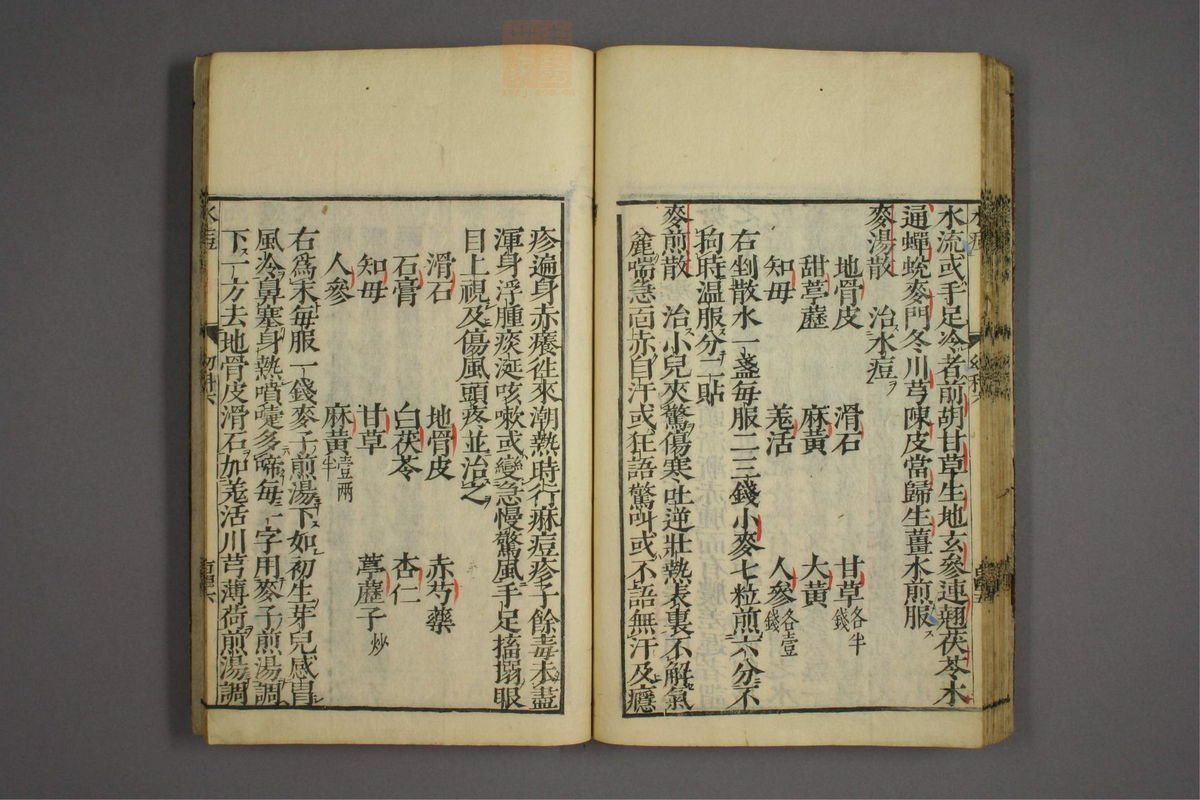 水流或手足冷者前胡甘草生地玄參連翹茯苓木
通蟬蛻麥門冬川芎陳皮當歸生薑水煎服
麥湯散　治水痘
地骨皮　滑石　甘草各半錢
甜葶藶　麻黄　大黄
知母　羗活　人參各壹錢
右剉散水一盞毎服二三錢小麥七粒煎六分不
拘時温服分二貼
麥煎散　治小兒夾驚傷寒吐逆壯熱表裏不解氣
麄喘急面赤自汗或狂語驚叫或不語無汗及癮
疹遍身赤癢徃來潮熱時行痳痘疹子餘毒未盡
渾身浮腫痰涎咳嗽或變急慢驚風手足搐搦眼
目上視及傷風頭疼並治之
滑石　地骨皮　赤芍藥
石膏　白茯苓　杏仁
知母　甘草　葶藶子炒
人參　麻黄壹两半
右爲末毎服一錢麥子煎湯下如初生芽兒感冐
風冷鼻塞身熱噴嚏多啼毎一字用麥子煎湯調
下一方去地骨皮滑石加羗活川芎薄荷煎湯調
水痘